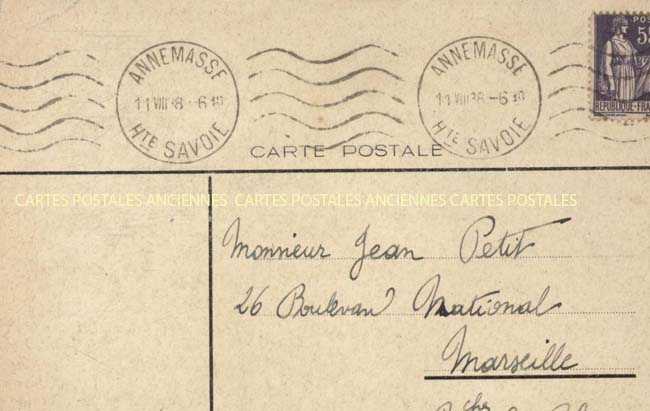 ANNEMASSE
11 VIII 38 - 6 30
Hte SAVOIE
ANNEMASSE
11 VIII 38 - 6 30
Hte SAVOIE
POS
55
REPUBLIQUE-FRAN
CARTE POSTALE
CARTES POSTALES ANCIENNES CARTES POSTALES ANCIENNES CARTES POSTALES
Monsieur Jean Petit
26 Boulevard National
Marseille